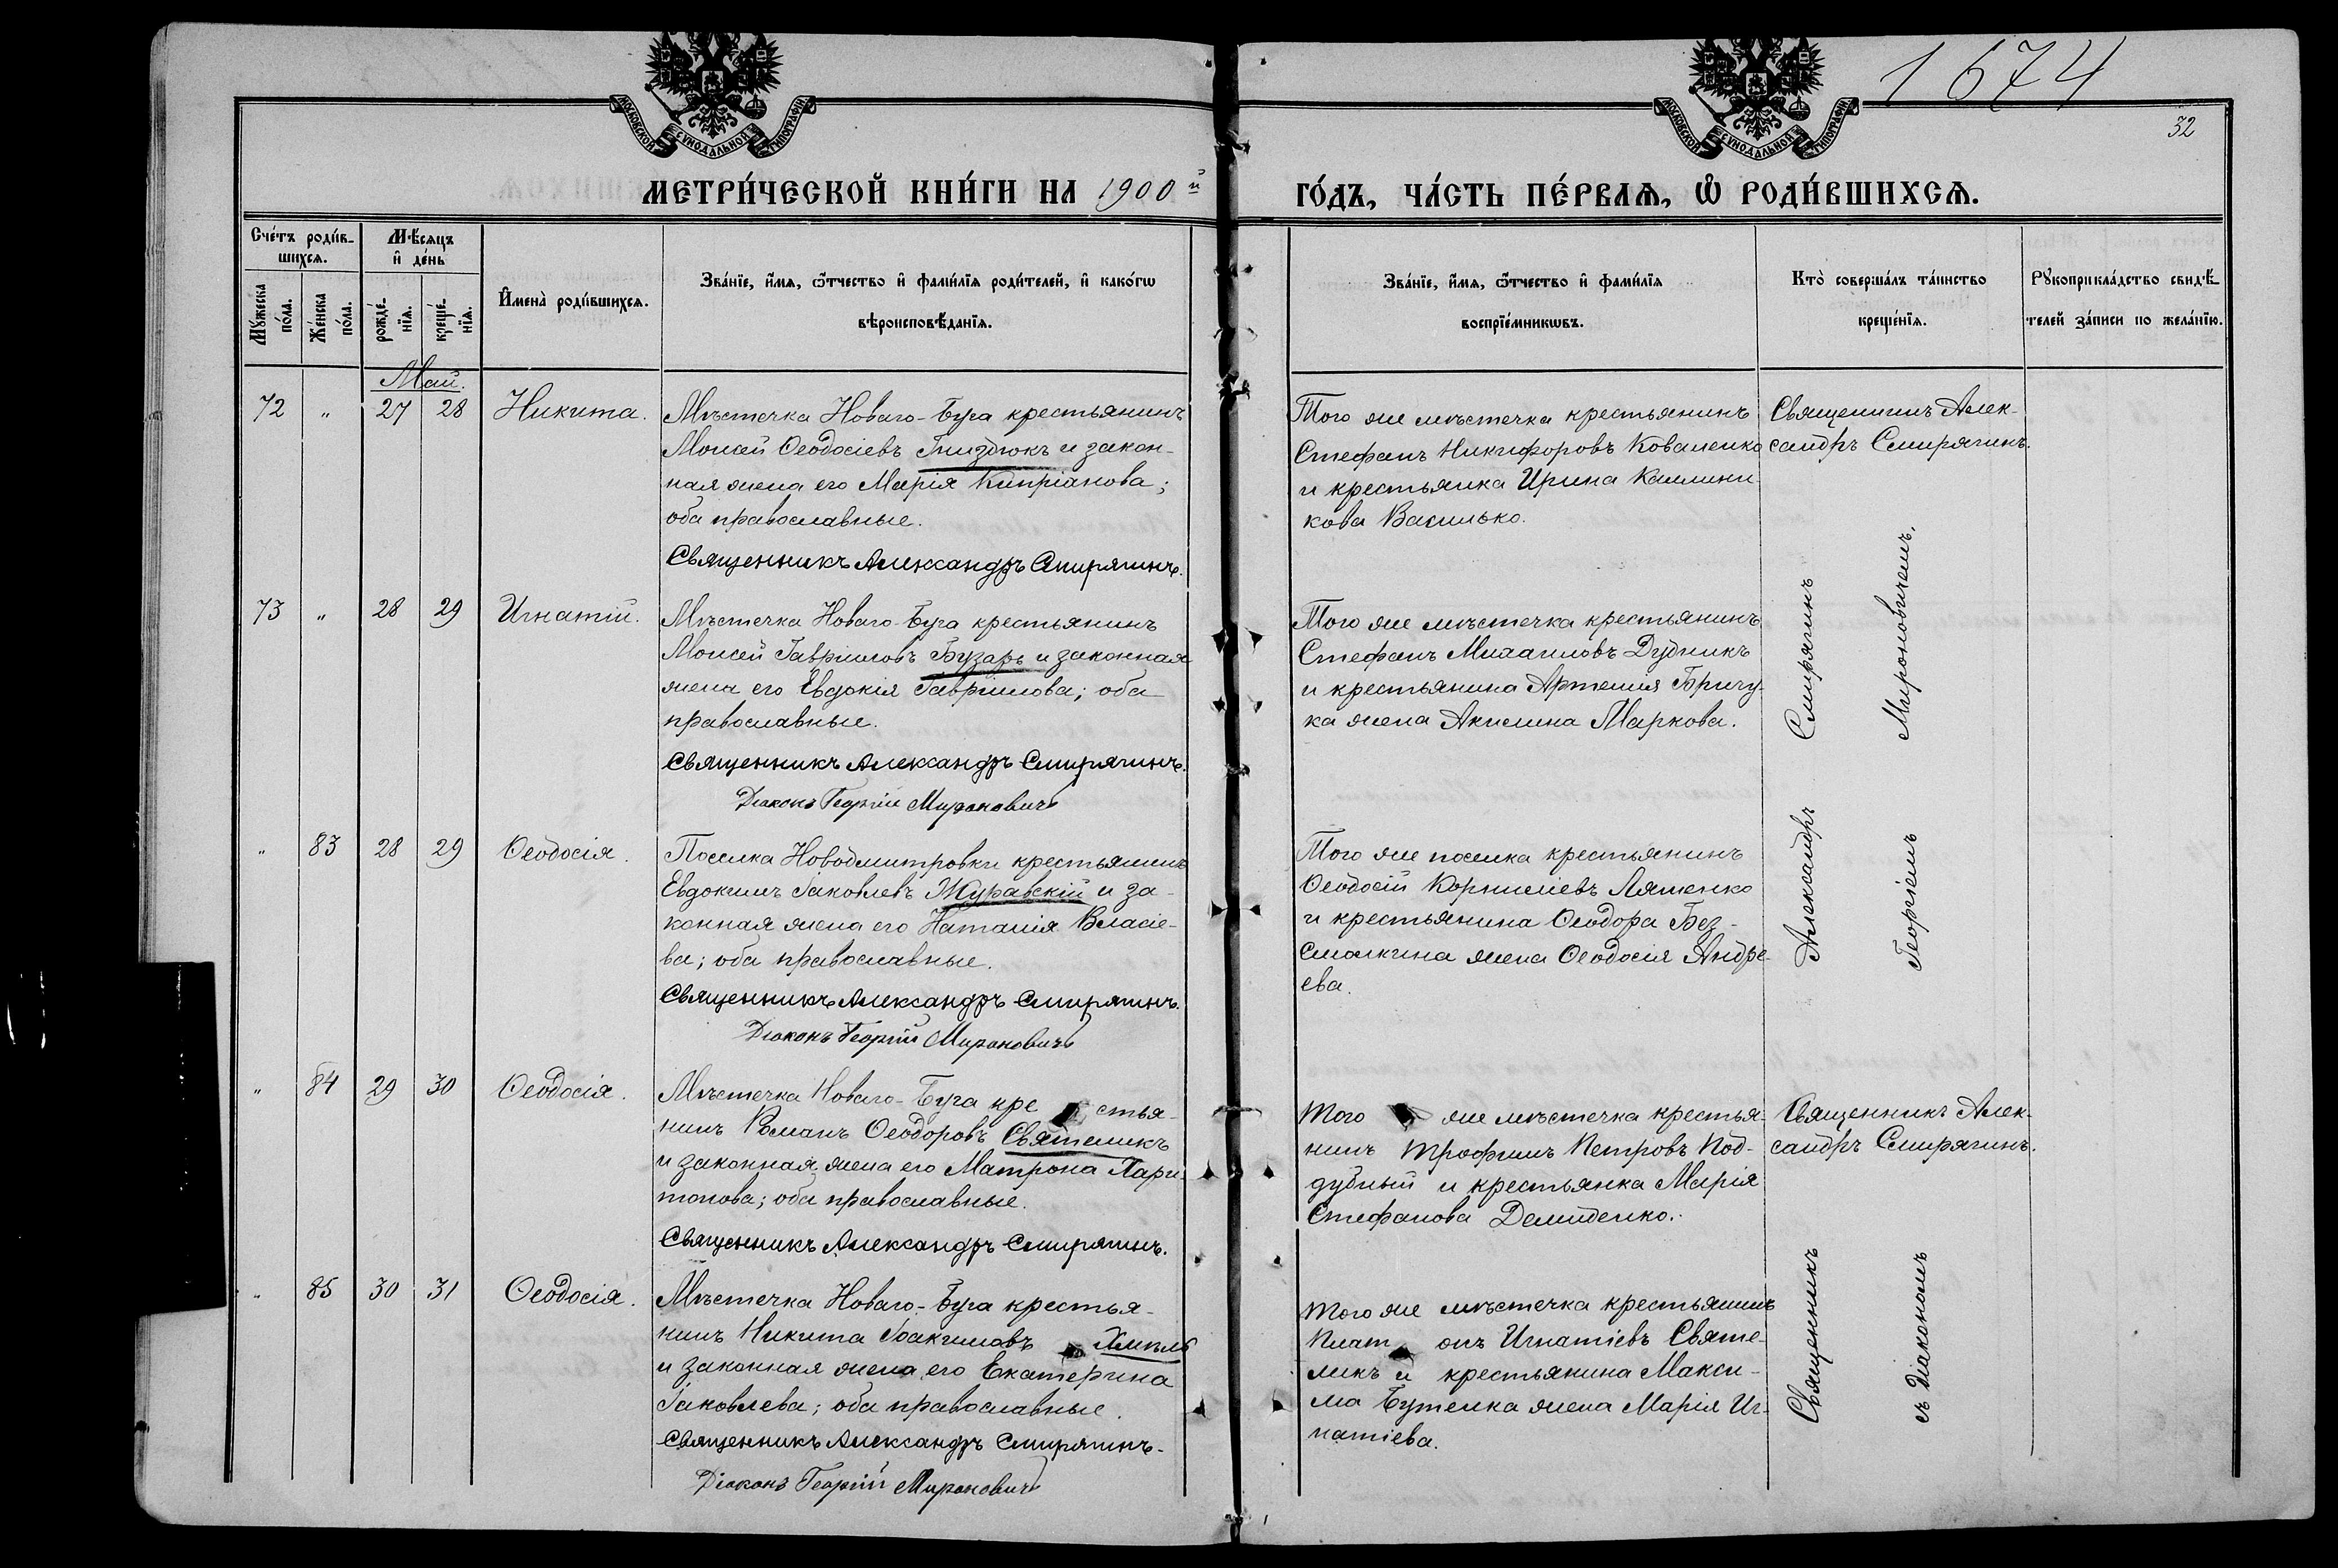 1674
32
МОСКОВСКОЙ СѴНОДАЛЬНОЙ ТИПОГРАФІИ
МОСКОВСКОЙ СѴНОДАЛЬНОЙ ТИПОГРАФІИ
МЕТРИ́ЧЕСКОЙ КНИ́ГИ НА 1900й
ГО́ДЪ, ЧА́СТЬ ПЕ́РВАѦ, Ѡ РОДИ́ВШИХСѦ.
Сче́тъ роди́в-
шихсѧ.
Мѣ́сѧцъ
и҆ де́нь
Мꙋ́жеска
по́ла.
Же́нска
по́ла.
рожде́-
нїѧ.
креще́-
нїѧ.
И҆мена̀ роди́вшихсѧ.
Зва́нїе, и҆́мѧ, ѻ҆́тчество и҆ фами́лїѧ роди́телей, и҆ како́гѡ
вѣроисповѣ́данїѧ.
Зва́нїе, и҆́мѧ, ѻ҆́тчество и҆ фами́лїѧ
воспрїе́мникѡвъ.
Кто̀ соверша́лъ та́инство
креще́нїѧ.
Рꙋкоприкла́дство свидѣ́-
телей за́писи по жела́нїю.
Май.
72 " 27 28 Никита.
Мѣстечка Новаго-Буга крестьянинъ
Моисей Ѳеодосіевъ Гниздюкъ и закон-
ная жена его Марія Кипріанова;
оба православные.
Священникъ Александръ Смирягинъ.
Того же мѣстечка крестьянинъ
Стефанъ Никифоровъ Коваленко
и крестьянка Ирина Каллини
кова Василько.
Священникъ Алек-
сандръ Смирягинъ.
73 " 28 29 Игнатій.
Мѣстечка Новаго-Буга крестьянинъ
Моисей Гавриловъ Бузарь и законная
жена его Евдокія Гавриилова; оба
православные.
Священникъ Александръ Смирягинъ.
Діаконъ Георгій Мироновичъ
Того же мѣстечка крестьянинъ
Стефанъ Михаиловъ Дудникъ
и крестьянина Артемія Бричу-
ка жена Акилина Маркова.
" 83 28 29 Ѳеодосія.
Поселка Новодмитровки крестьянинъ
Евдокимъ Іаковлевъ Журавскій и за-
конная жена его Наталія Власіе-
ва; оба православные.
Священникъ Александръ Смирягинъ.
Діаконъ Георгій Мироновичъ
Того же поселка крестьянинъ
Ѳеодосій Корниліевъ Ляшенко
и крестьянина Ѳеодора Без-
смолкина жена Ѳеодосія Андре-
ева.
" 84 29 30 Ѳеодосія.
Мѣстечка Новаго-Буга кре стья-
нинъ Романъ Ѳеодоровъ Святеликъ
и законная жена его Матрона Хари-
тонова; оба православные.
Священникъ Александръ Смирягинъ.
Того же мѣстечка крестья-
нинъ Трофимъ Петровъ Под-
дубный и крестьянка Марія
Стефанова Демиденко.
Священникъ Алек-
сандръ Смирягинъ.
" 85 30 31 Ѳеодосія.
Мѣстечка Новаго-Буга крестья-
нинъ Никита Іоакимовъ Хмѣль
и законная жена его Екатерина
Іаковлева; оба православные.
Священникъ Александръ Смирягинъ.
Діаконъ Георгій Мироновичъ
Того же мѣстечка крестьянинъ
Плат онъ Игнатіевъ Святе-
ликъ и крестьянина Макси-
ма Бутенка жена Марія Иг-
натіева.
Священникъ Александръ Смирягинъ
съ діакономъ Георгіемъ Мироновичемъ.